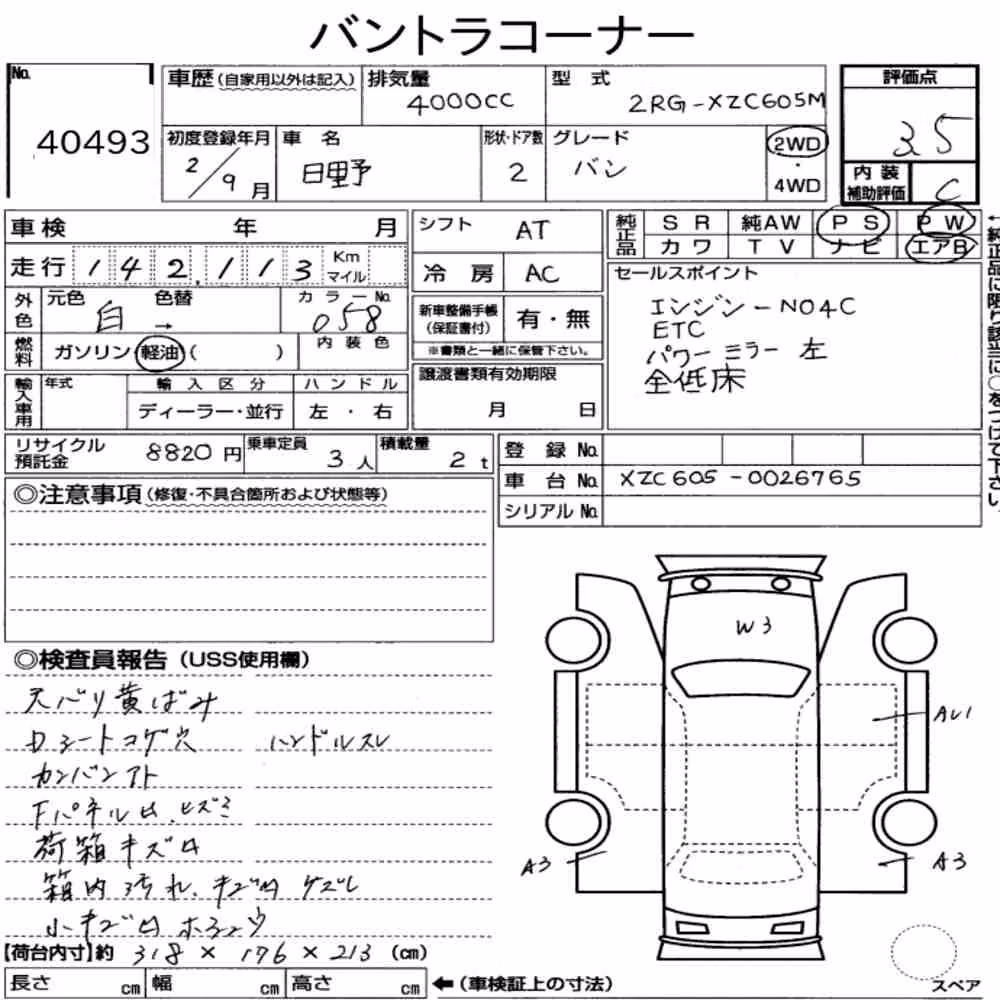 バントラコーナー
No. 40493
車歴(自家用以外は記入)
排気量 4000CC
型式 2RG-XZC605M
評価点 3.5
初度登録年月 2/9月
車名 日野
形状・ドア数 2
グレード バン
2WD・4WD
内装補助評価 C
車検 年 月
シフト AT
純正品 SR 純AW PS PW
カワ TV ナビ エアB
走行 142,113 Km マイル
冷房 AC
セールスポイント
エンジン-N04C
ETC
パワーミラー左
全低床
外色 元色 白 → 色替 カラーNo. 058
新車整備手帳(保証書付) 有・無
※書類と一緒に保管下さい。
燃料 ガソリン 軽油( ) 内装色
譲渡書類有効期限 月 日
輸入車用 年式 輸入区分 ハンドル
ディーラー・並行 左・右
←純正品に限り該当に○をつけて下さい。
リサイクル預託金 8820円
乗車定員 3人
積載量 2t
登録No.
車台No. XZC605-0026765
シリアルNo.
◎注意事項(修復・不具合箇所および状態等)
◎検査員報告(USS使用欄)
天バリ黄ばみ
Dシートコゲ穴 ハンドルスレ
カンバンアト
Fパネル凹、ヒズミ
荷箱キズ凹
箱内汚れ、キズ凹ゲズレ
小キズ凹ホシュウ
【荷台内寸】約 318×176×213 (cm)
長さ cm 幅 cm 高さ cm ←(車検証上の寸法)
W3
AU1
A3
A3
スペア